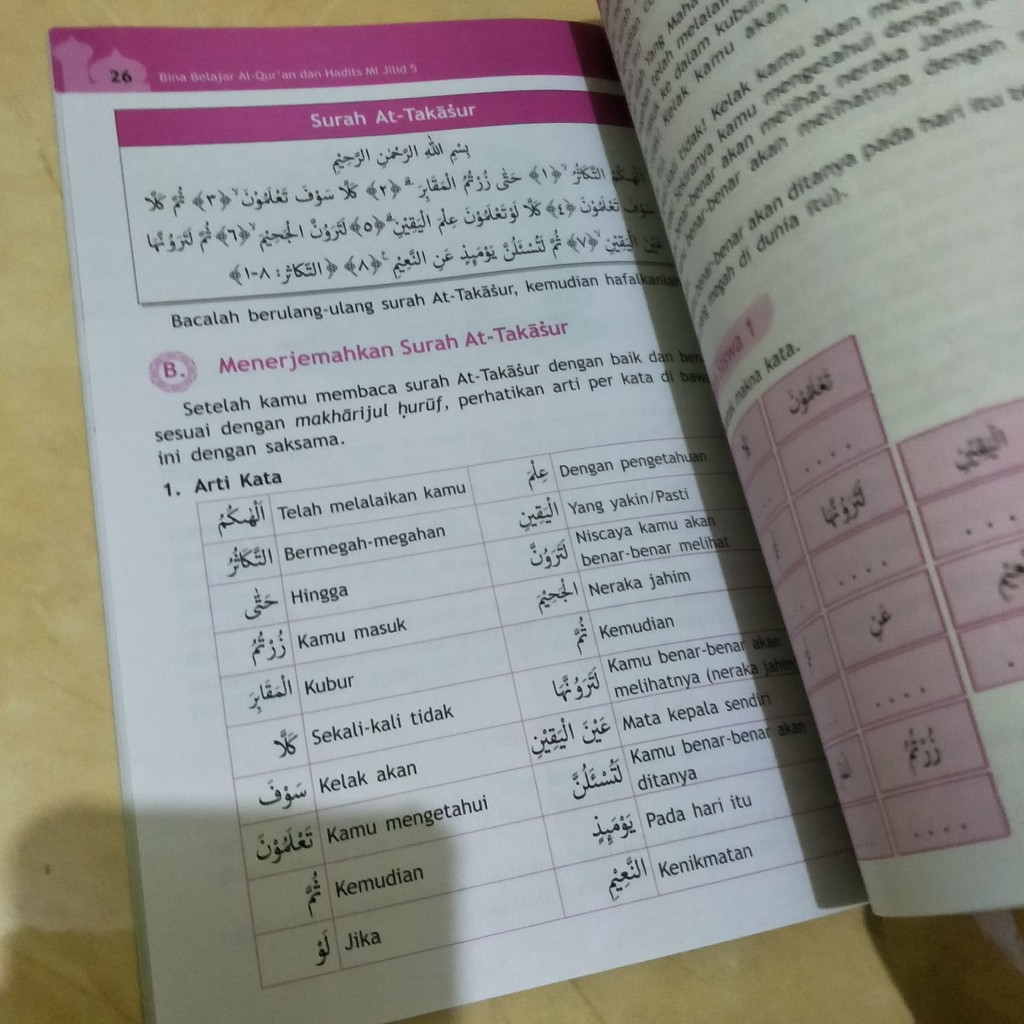 26 Bina Belajar Al-Qur'an dan Hadits MI Jilid 5
Surah At-Takāṡur
بِسْمِ اللّٰهِ الرَّحْمٰنِ الرَّحِيْمِ
التَّكَاثُرُۙ ﴿١﴾ حَتّٰى زُرْتُمُ الْمَقَابِرَۗ ﴿٢﴾ كَلَّا سَوْفَ تَعْلَمُوْنَۙ ﴿٣﴾ ثُمَّ كَلَّا
سَوْفَ تَعْلَمُوْنَ ﴿٤﴾ كَلَّا لَوْ تَعْلَمُوْنَ عِلْمَ الْيَقِيْنِۗ ﴿٥﴾ لَتَرَوُنَّ الْجَحِيْمَۙ ﴿٦﴾ ثُمَّ لَتَرَوُنَّهَا
عَيْنَ الْيَقِيْنِۙ ﴿٧﴾ ثُمَّ لَتُسْئَلُنَّ يَوْمَئِذٍ عَنِ النَّعِيْمِ ﴿٨﴾ ﴿التَّكَاثُر: ٨-١﴾
Bacalah berulang-ulang surah At-Takāṡur, kemudian hafalkanlah
B. Menerjemahkan Surah At-Takāṡur
Setelah kamu membaca surah At-Takāṡur dengan baik dan
sesuai dengan makhārijul ḥurūf, perhatikan arti per kata di
ini dengan saksama.
1. Arti Kata
اَلْهٰىكُمُ Telah melalaikan kamu عِلْمَ Dengan pengetahuan
التَّكَاثُرُ Bermegah-megahan الْيَقِيْنِ Yang yakin/Pasti
حَتّٰى Hingga لَتَرَوُنَّ Niscaya kamu akan
benar-benar melihat
زُرْتُمُ Kamu masuk الْجَحِيْمَ Neraka jahim
الْمَقَابِرَ Kubur ثُمَّ Kemudian
كَلَّا Sekali-kali tidak لَتَرَوُنَّهَا Kamu benar-benar akan
melihatnya (neraka jahim
سَوْفَ Kelak akan عَيْنَ الْيَقِيْنِ Mata kepala sendiri
تَعْلَمُوْنَ Kamu mengetahui لَتُسْئَلُنَّ Kamu benar-benar akan
ditanya
ثُمَّ Kemudian يَوْمَئِذٍ Pada hari itu
لَوْ Jika النَّعِيْمِ Kenikmatan
telah melalaikan
ke dalam kubur
kelak kamu akan
tidak! Kelak kamu akan
kamu mengetahui dengan
akan melihat neraka Jahim.
akan melihatnya dengan
benar akan ditanya pada hari itu
megah di dunia itu).
Siswa 1
makna kata.
تَعْلَمُوْنَ
. . . .
الْيَقِيْنِ
. . .
لَتَرَوُنَّهَا
. . . .
عَنِ
. . . .
زُرْتُمُ
. . . .